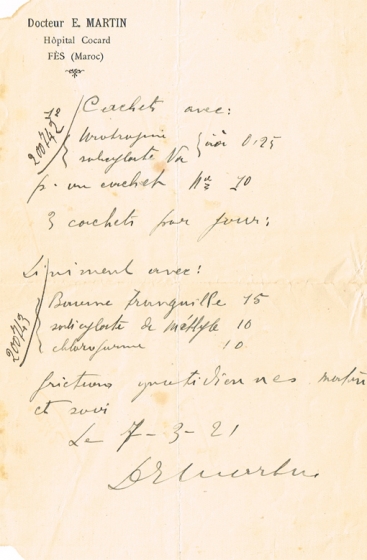 Docteur E. MARTIN
Hôpital Cocard
FÈS (Maroc)
Cachets avec:
Urotropine
salicylate Na
āā 0,25
p. un cachet Nº 30
3 cachets par jour;
200742
Liniment avec:
Baume tranquille 15
salicylate de méthyle 10
chloroforme 10
200743
frictions quotidiennes matin
et soir
Le 7-3-21
Dr E Martin